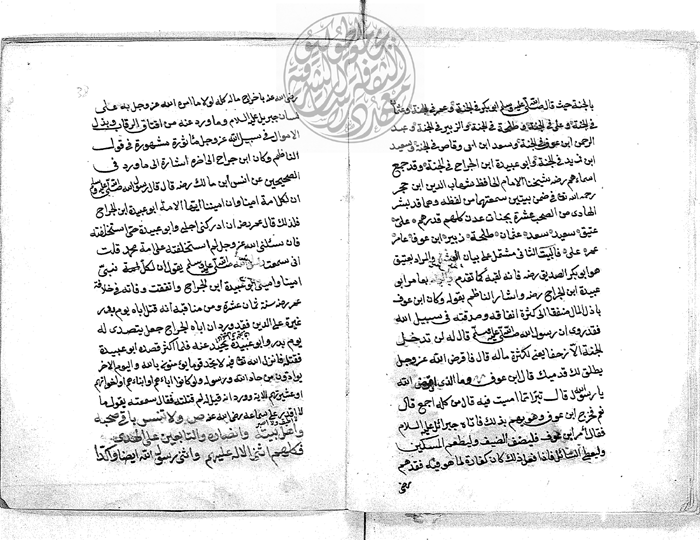 بالجنة حيث قال صلى الله عليه وسلم ابو بكر في الجنة وعمر في الجنة وعثمان
في الجنة وعلى في الجنة وطلحة في الجنة والزبير في الجنة وعبد
الرحمن ابن عوف في الجنة وسعد ابن ابى وقاص في الجنة وسعيد
ابن زيد في الجنة وابو عبيدة ابن الجراح في الجنة وقد جمع
اسماءهم رضه شيخنا الامام الحافظ شهاب الدين ابن حجر
رحمه الله تعا في ضمن بيتين سمعتهما من لفظه وهما قد بشر
الهادى من الصحب عشرة بجنات عدن كلهم قدرهم على
عتيق سعيد سعد عثمان طلحة زبير ابن عوف عامر
عمر على فالبيت الثانى مشتمل على بيان العشرة والمراد بعتيق
هو ابو بكر الصديق رضه فانه لقبه كما تقدم وعامر هو ابو
عبيدة ابن الجراح رضه واشار الناظم بقوله وكان ابن عوف
باذل المال منفقا الى كثرة انفاقه وصدقته في سبيل الله
فقد روى ان رسول الله صلى الله عليه وسلم قال له لن تدخل
الجنة الا زحفا يعنى لكثرة ماله قال فاقرض الله عز وجل
يطلق لك قدميك قال ابن عوف وما الذى اقرض الله
يا رسول الله قال تتبرأ مما امسيت فيه قال من كله اجمع قال
نعم فخرج ابن عوف وهو يهم بذلك فاتاه جبرائيل عليه السلام
فقال مر ابن عوف فليضف الضيف وليطعم المسكين
وليعطى السائل فاذا فعل ذلك كان كفارة لما هو فيه فقد هم
رضى الله عنه باخراج ماله كله لولا ما امره الله عز وجل به على
لسان جبريل عليه السلام وما ورد عنه من اعتاق الرقاب وبذل
الاموال في سبيل الله عز وجل مأثرة مشهورة في قول
الناظم وكان ابن جراح الى اخره اشارة الى ما ورد في
الصحيحين عن انس ابن مالك رضه قال قال رسول الله صلى الله عليه وسلم
ان لكل امة امينا وان امينا ايتها الامة ابو عبيدة ابن الجراح
فلذلك قال عمر رضه ان ادركنى اجلى وابو عبيدة حي استخلفته
فان سئلنى الله عز وجل لم استخلفته على امة محمد قلت
انى سمعت رسول الله صلى الله عليه وسلم يقول ان لكل امة نبي
امينا وامينى ابو عبيدة ابن الجراح واتفقت وفاته في خلافة
عمر رضه سنة ثمان عشرة ومن مناقبه أنه قتل اباه يوم بدر
غيرة على الدين فقد ورد ان اباه الجراح جعل يتصدى له
يوم بدر وابو عبيدة يحيد عنه فلما اكثر قصده ابو عبيدة
فقتله فانزل الله تعا فيه لا تجد قوما يؤمنون بالله واليوم الاخر
يوادون من حاد الله ورسوله ولو كانوا اباءهم او ابناءهم او اخوانهم
او عشيرتهم الاية وورد انه قيل له لم قتلته فقال سمعته يقول ما
رضى الله عنه ص ولا تنس باقى صحبه
واهل بيته وانصاره والتابعين على الهدى
فكلهم اثنى الاله عليهم واثنى رسول الله ايضا واكدا